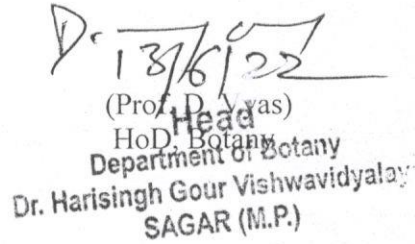 D.
13/6/22
(Prof. D. Vyas)
Head
HoD, Botany
Department of Botany
Dr. Harisingh Gour Vishwavidyalay
SAGAR (M.P.)